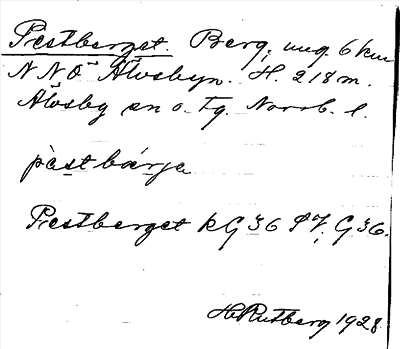 Prestberget. Berg, ung. 6 km
NNÖ Älvsbyn. H. 218 m.
Älvsby sn o. tg. Norrb. l.
pɩ̀stbár̨ja
Prestberget kG 36 SV, G 36.
H. Rutberg 1928